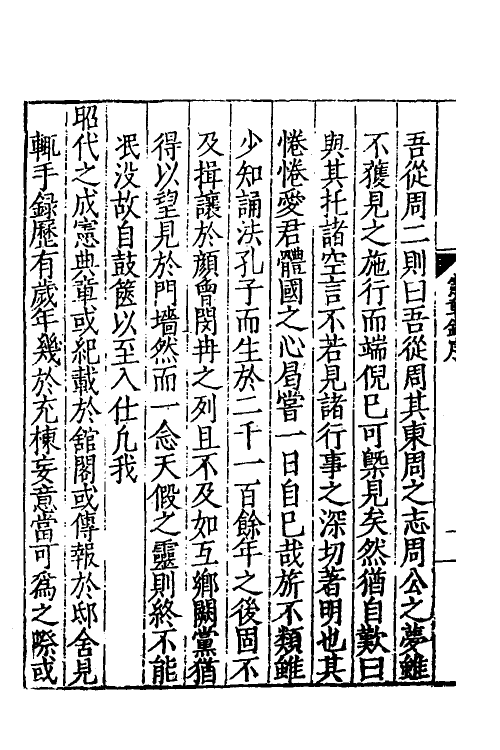 吾從周二則曰吾從周其東周之志周公之夢雖
不獲見之施行而端倪已可槩見矣然猶自歎曰
與其托諸空言不若見諸行事之深切著明也其
惓惓愛君體國之心曷嘗一日自已哉旂不類雖
少知誦法孔子而生於二千一百餘年之後固不
及揖讓於顔曾閔冉之列且不及如互鄉闕黨猶
得以望見於門墻然而一念天假之靈則終不能
泯没故自鼓篋以至入仕凢我
昭代之成憲典章或紀載於舘閣或傳報於邸舍見
輒手録歷有歲年幾於充棟妄意當可爲之際或
憲章録序
一